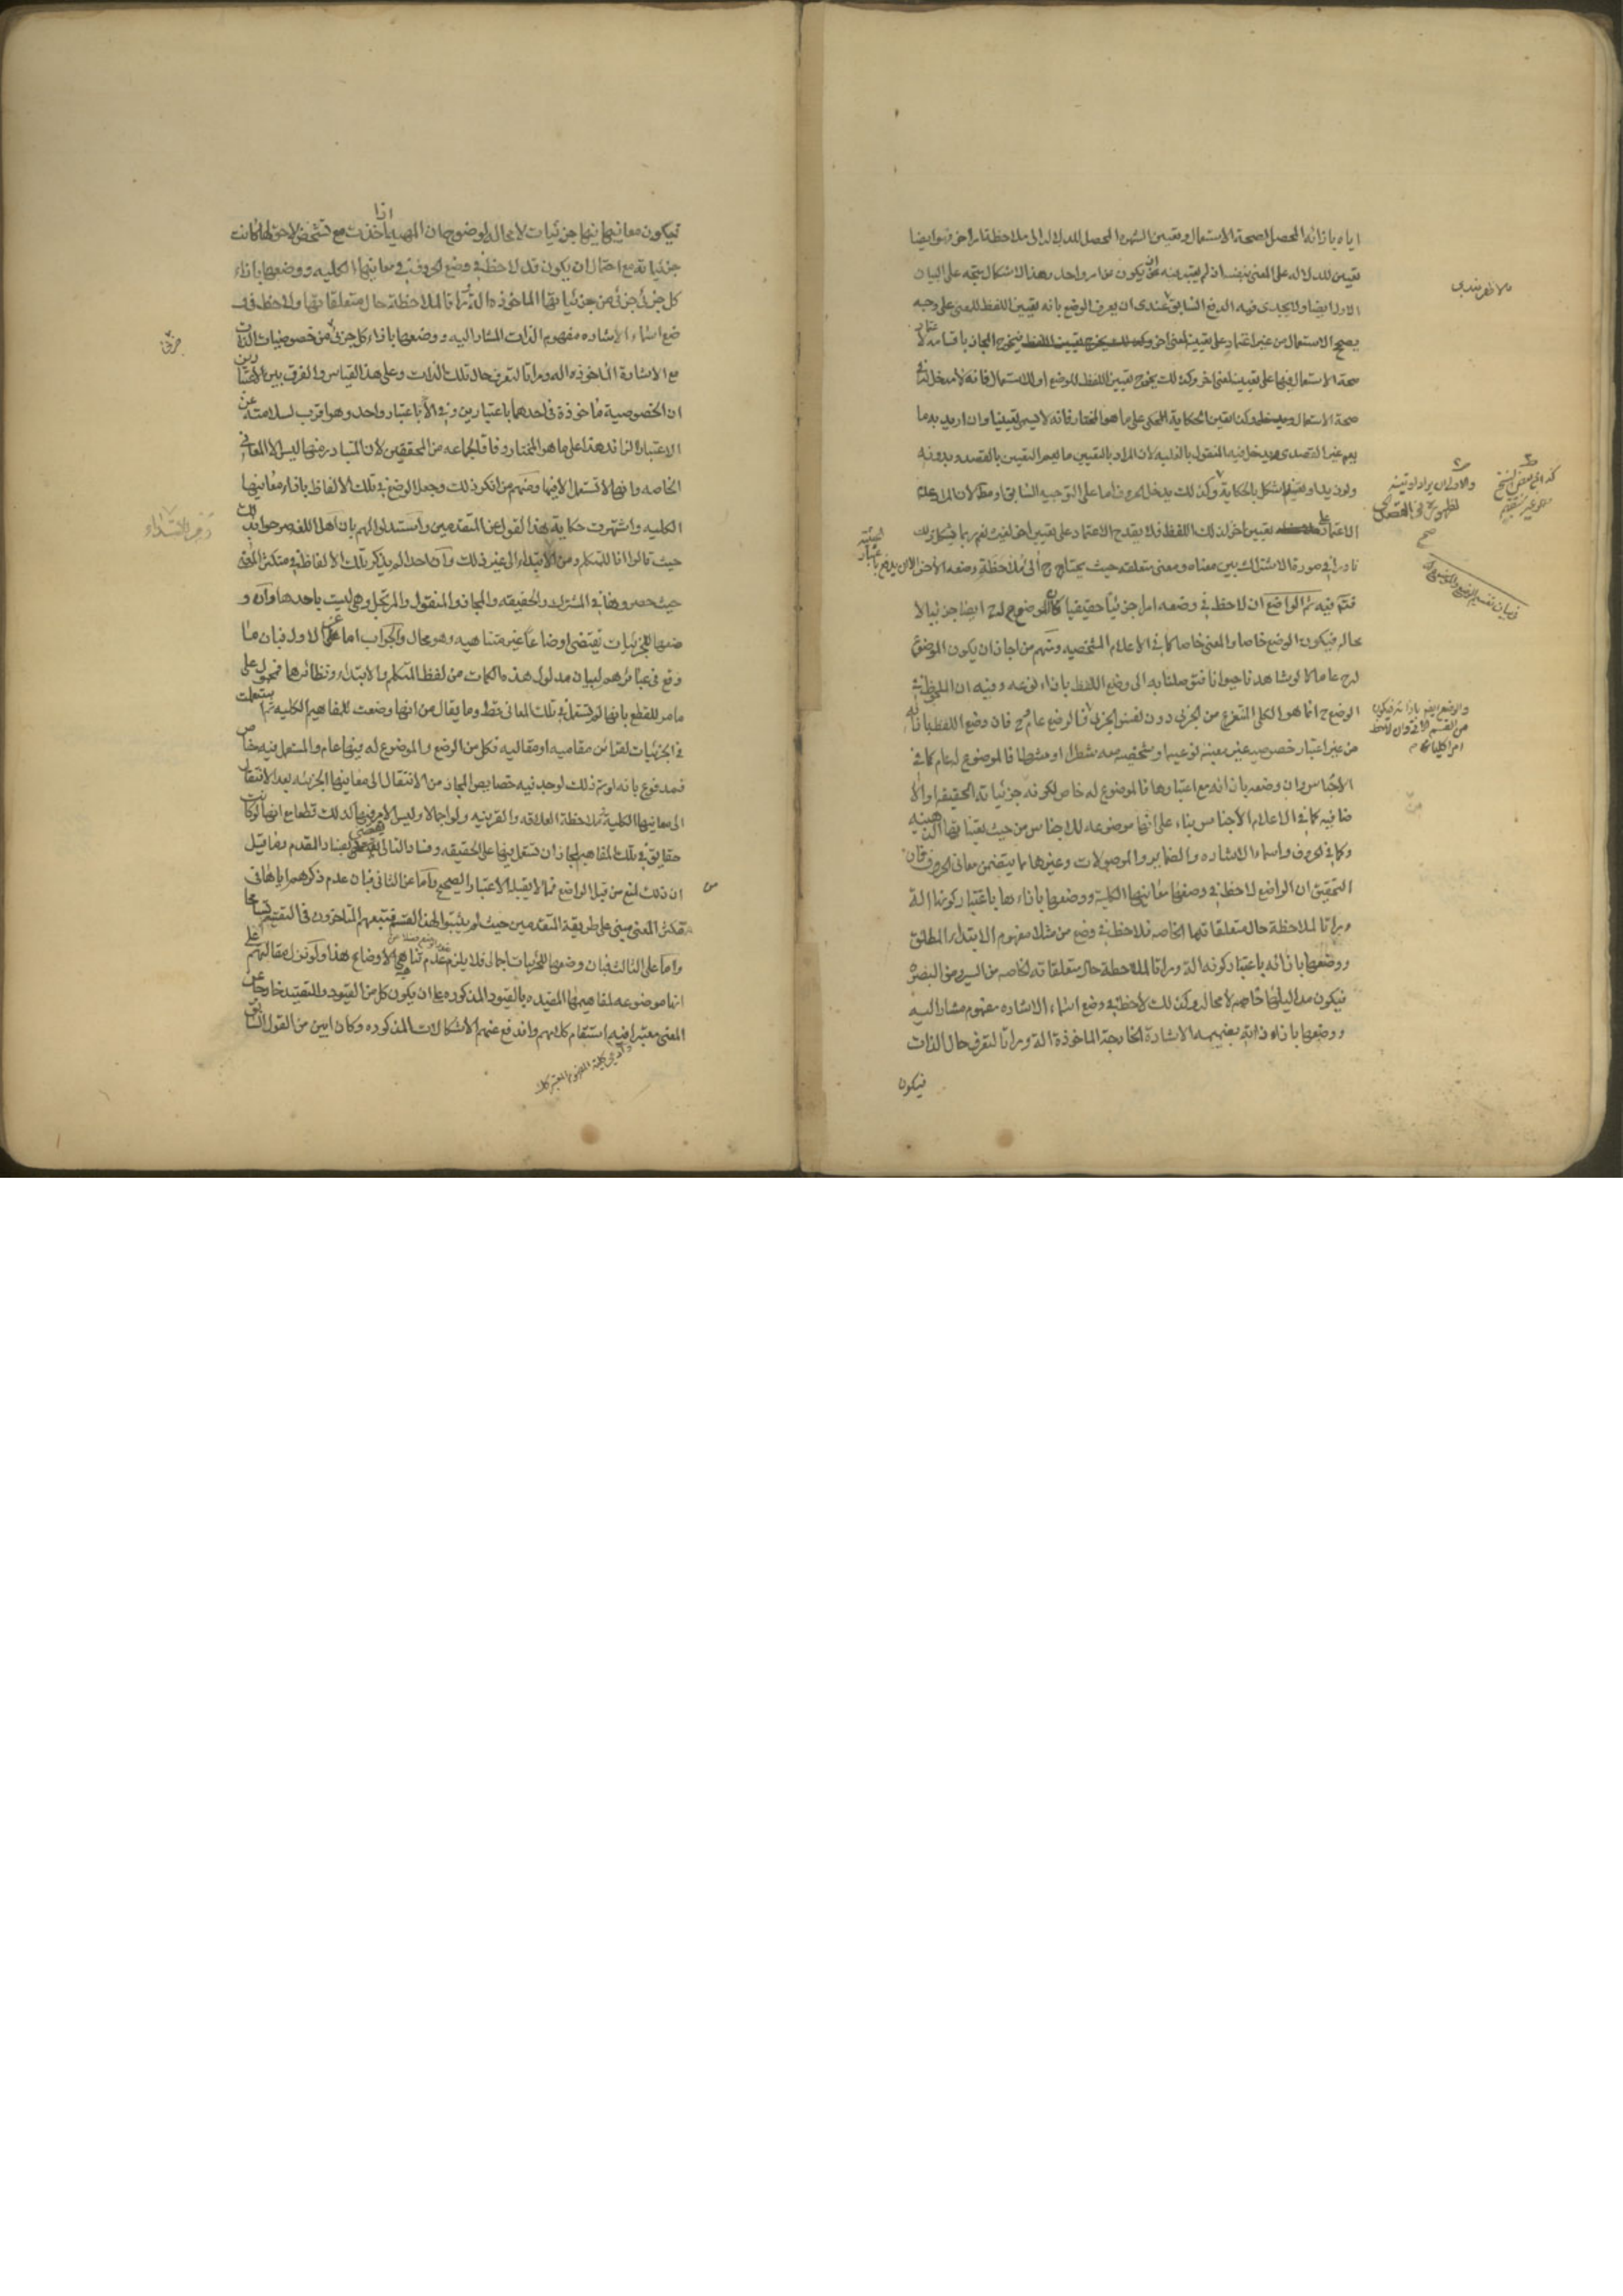 اياه بازائه المحصل لصحة الاستعمال وتعيين الشهرة المحصل للدلالة الى ملاحظة امر اخر فهو ايضا
تعيين للدلالة على المعنى بنفسه ان لم يعتبر فيه ان يكون من امر واحد وهذا الاشكال يتجه على البيان
الاول ايضا ولا يجدى فيه الدفع السابق عندى ان يعرف الوضع بانه تعيين اللفظ للمعنى على وجه
يصح الاستعمال من غير اعتماد على تعيينه لمعنى اخر فيخرج المجاز باقسامه لاعتماد
صحة الاستعمال فيها على تعيينه لمعنى اخر وكذلك يخرج تعيين اللفظ للوضع او للاستعمال فانه لا مدخل له فى
صحة الاستعمال وكذا تعيين الحكاية للمحكى على ما هو المختار فانه لا يسمى تعيينا وان اريد به ما
يعم غير القصدى ويدخل فيه المنقول بالغلبة لان المراد بالتعيين ما يعم التعيين بالقصد وبدونه
ولو زيد او تعينه لم يشكل بالحكاية وكذلك يدخل الحرف اما على التوجيه السابق او مطلقا لان المراد عدم
الاعتماد على تعيين اخر لذلك اللفظ فلا يقدح الاعتماد على تعيين اخر لغيره نعم ربما يشكل ذلك
نادرا فى صورة الاشتراك بين معناه ومعنى متعلقه حيث يحتاج ح الى ملاحظة وضعه الاخر الا ان يدفع باعتبار الحيثية
فتم فيه ثم الواضع ان لاحظ فى وضعه امرا جزئيا حقيقيا كان الموضوع له ح ايضا جزئيا لا
محالة فيكون الوضع خاصا والمعنى خاصا كما فى الاعلام الشخصية ومنهم من اجاز ان يكون الموضوع
له ح عاما كما لو شاهدنا حيوانا فتوصلنا به الى وضع اللفظ بازاء نوعه وفيه ان الملحوظ فى
الوضع ح انما هو الكلى المنتزع من الجزئى دون نفس الجزئى فالوضع عام ح فان وضع اللفظ بازائه
من غير اعتبار خصوصية غير معينة نوعية او شخصية معه شطرا او شرطا فالموضوع له عام كما فى
الاجناس وان وضعه بازائه مع اعتبارها فالموضوع له خاص لكونه جزئياته الحقيقية او الاضافية
كما فى الاعلام الاجناس بناء على انها موضوعة للاجناس من حيث تعيناتها الذهنية
وكما فى الحروف واسماء الاشارة والضماير والموصولات وغيرها مما يتضمن معانى الحروف فان
التحقيق ان الواضع لاحظ فى وضعها معانيها الكلية ووضعها بازاءها باعتبار كونها الة
ومراتا لملاحظة حال متعلقاتها الخاصة فلاحظ فى وضع من مثلا مفهوم الابتداء المطلق
ووضعها بازائه باعتبار كونه الة ومراتا لملاحظة حال متعلقاته الخاصة من السير من البصرة
فيكون مداليلها خاصة لا محالة وكذلك لاحظ فى وضع اسماء الاشارة مفهوم مشار اليه
ووضعها بازاء ذاته بضميمة الاشارة الخارجة الماخوذة الة ومراتا لتعرف حال الذات
فيكون
فى بيان تقسيم الوضع والموضوع له
والوضع ايضا بازائه فيكون
من القسم الاتى وان لاحظ
امرا كليا فالوضع عام
فيكون معانيها فيها جزئيات لا محالة لوضوح ان المهية اذا اخذت مع تشخص لاحق لها كانت
جزئية مع احتمال ان يكون قد لاحظ فى وضع الحروف معانيها الكلية ووضعها بازاء
كل جزئى جزئى من جزئياتها الماخوذة الة ومراتا لملاحظة حال متعلقاتها ولاحظ فى
وضع اسماء الاشارة مفهوم الذات المشار اليه ووضعها بازاء كل جزئى من خصوصيات الذات
مع الاشارة الماخوذة الة ومراتا لتعرف حال تلك الذات وعلى هذا القياس والفرق بين الاعتبارين
ان الخصوصية ماخوذة فى احدهما باعتبارين وفى الاخر باعتبار واحد وهو اقرب لسلامته عن
الاعتبار الزائد هذا على ما هو المختار وفاقا لجماعة من المحققين لان المتبادر منها ليس الا المعانى
الخاصة وانها لا تستعمل الا فيها ومنهم من انكر ذلك وجعل الوضع فى تلك الالفاظ بازاء معانيها
الكلية واشتهرت حكاية هذا القول عن المتقدمين واستدلوا لهم بان اهل اللغة صرحوا بذلك
حيث قالوا انا للمتكلم ومن للابتداء الى غير ذلك وان احدا لم يذكر تلك الالفاظ فى متكثر المعنى
حيث حصروها فى المشترك والحقيقة والمجاز والمنقول والمرتجل وهى ليست باحدها وان و
ضعها للجزئيات تقتضى اوضاعا غير متناهية وهو محال والجواب اما عن الاول فبان ما
وقع فى عبائرهم لبيان مدلول هذه الكلمات من لفظ المتكلم والابتداء ونظائرها فمحمول على
ما مر للقطع بانها لم تستعمل فى تلك المعانى قط وما يقال من انها وضعت للمفاهيم الكلية ثم استعملت
فى الجزئيات لقرائن مقامية او مقالية فكل من الوضع والموضوع له فيها عام والمستعمل فيه خاص
فمدفوع بانه لو تم ذلك لوجد فيه خصايص المجاز من الانتقال الى معانيها الجزئية بعد الانتقال
الى معانيها الكلية بملاحظة العلاقة والقرينة ولو اجمالا وليس الامر فيها كذلك قطعا مع انها لو كانت
حقايق فى تلك المفاهيم لجاز ان تستعمل فيها على الحقيقة وفساد التالى يقضى بفساد المقدم وما قيل
ان ذلك لمنع من قبل الواضع فمما لا يقبله الاعتبار الصحيح واما عن الثانى فبان عدم ذكرهم اياها فى
متكثر المعنى مبنى على طريقة المتقدمين حيث لم يثبتوا لهذا القسم فتبعهم المتاخرون فى التقسيم تسامحا
واما على الثالث فبان وضعها للجزئيات اجمالى فلا يلزم عدم تناهى الاوضاع هذا ولو نزل مقالتهم على
انها موضوعة لمفاهيمها المقيدة بالقيود المذكورة على ان يكون كل من القيود والتقييد خارجا عن
المعنى معتبرا فيه استقام كلامهم واندفع عنهم الاشكالات المذكورة وكان ابين من القول السابق